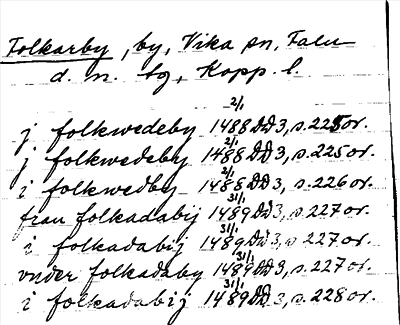 Folkarby, by, Vika sn, Falu
d. m. tg, Kopp. l.
j folkwedeby 2/1 1488 DD 3, s. 225 or.
j folkwedeby 2/1 1488 DD 3, s. 225 or.
i folkwedby 2/1 1488 DD 3, s. 226 or.
fran folkadabij 31/1 1489 DD 3, s. 227 or.
i folkadabij 31/1 1489 DD 3, s. 227 or.
vnder folkadaby 31/1 1489 DD 3, s. 227 or.
i folkadabij 31/1 1489 DD 3, s. 228 or.